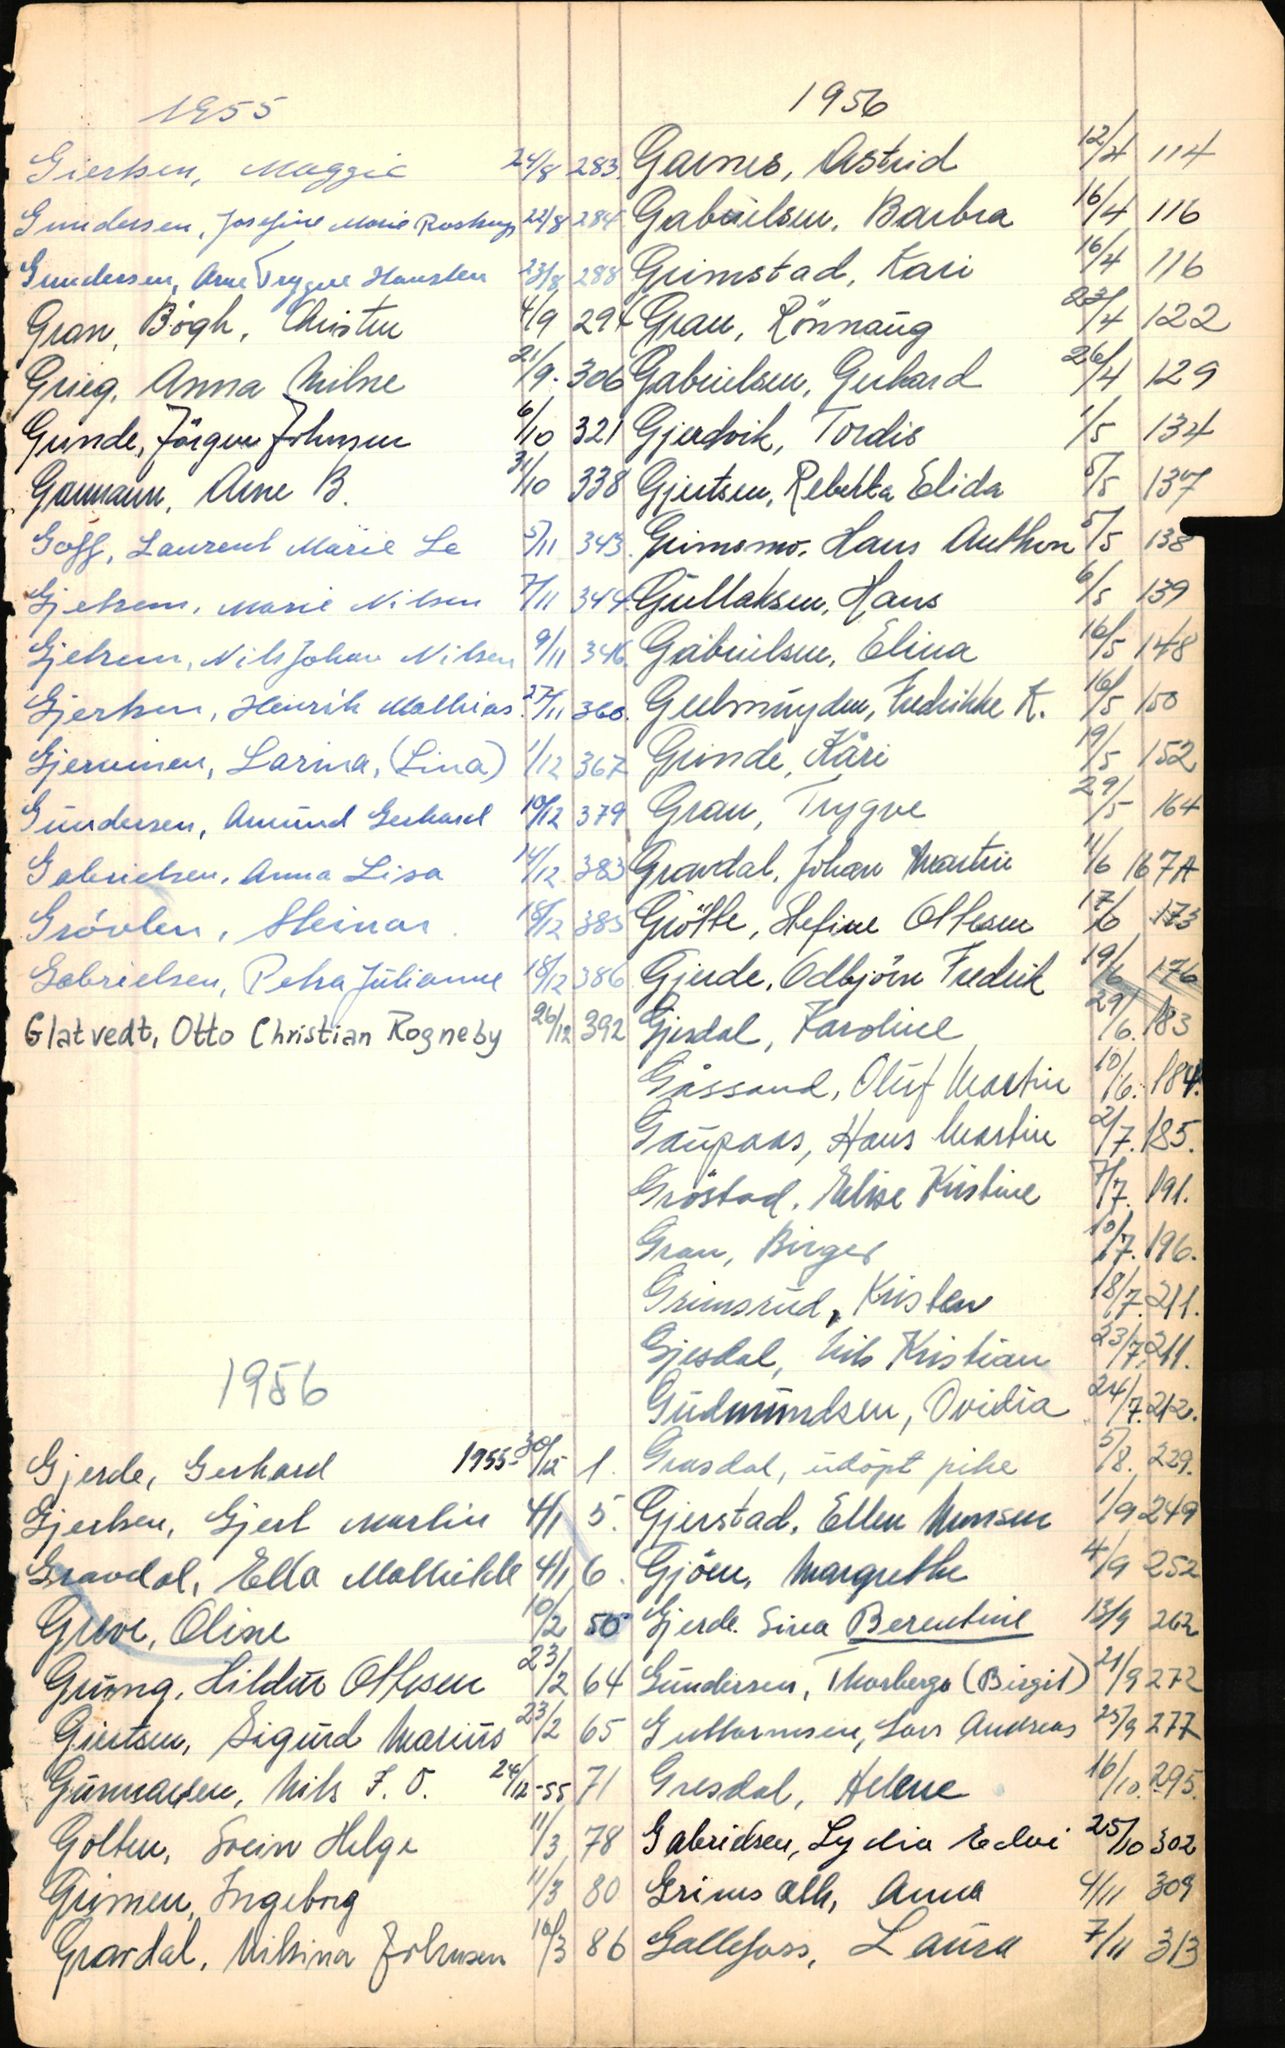 1955
Giertsen, Maggie 24/8 283.
Gundersen, Josefine Marie 22/8 284
Gundersen, Arne Trygve 23/8 288
Gran, Bögh, Christen 4/9 294
Grieg, Anna Milne 21/9. 306
Grinde, Jörgen Johnsen 6/10 321
Garmann, Arne B. 31/10 338
Goff, Laurent Marie Le 5/11 343.
Gjelsem, Marie Nilsen 7/11 344
Gjelsem, Nils Johan Nilsen 9/11 346
Gjertsen, Henrik Mathias 27/11 360.
Larina, (Lina) 1/12 367
Gundersen, Amund Gerhard 10/12 379
Gabrielsen, Anna Lisa 14/12 383
Grövlen, Steinar 18/12 385
Gabrielsen, Petra Julianne 18/12 386
Glatvedt, Otto Christian Rogneby 26/12 392
1956
Gjerde, Gerhard 1955- 30/12 1.
Gjertsen, Gjert Martin 4/1 5.
Gravdal, Ella Mathilde 4/1 6.
Greve, Oline 10/2 50
Grung, Hildur Ottesen 23/2 64
Gjertsen, Sigurd Marius 23/2 65
Nils J. O. 24/12-55 71
Golten, Svein Helge 11/3 78
Grimen, Ingeborg 11/3 80
Gravdal, Nilsina Johnsen 16/3 86
1956
Garnes, Astrid 12/4 114
Gabrielsen, Barbra 16/4 116
Grimstad, Kari 16/4 116
Gran, Rönnaug 23/4 122
Gabrielsen, Gerhard 26/4 129
Gjerdvik, Tordis 1/5 134
Gjertsen, Rebekka Elida 5/5 137
Grimsmo, Hans Anthon 5/5 138
Gullaksen, Hans 6/5 139
Gabrielsen, Elina 16/5 148
Gulbrandsen, Fredrikke K. 16/5 150
Grinde, Kari 19/5 152
Gran, Trygve 29/5 164
Gravdal, Johan Martin 11/6 167A
Grötte, Stefine Ottesen 17/6 173
Gjerde, Odbjörn Fredrik 19/6 176
Gjesdal, Karoline 29/6. 183
Gåssand, Oluf Martin 10/6. 184.
Gaupaas, Hans Martin 2/7. 185.
Gröstad, Elise Kristine 7/7. 191.
Gran, Birger 10/7. 196.
Grimsrud, Kristen 18/7. 211.
Gjesdal, Nils Kristian 23/7. 211.
Gudmundsen, Ovidia 24/7. 212.
Grasdal, udöpt pike 5/8. 229.
Gjerstad, Ellen Monsen 1/9 249
Gjöen, Margrethe 4/9 252
Gjerde Sina Berentine 13/9 262
Gundersen, Thorberga (Birgit) 21/9 272
Guttormsen, Lars Andreas 25/9 277
Gresdal, Helene 16/10. 295.
Gabrielsen, Lydia Edvi 25/10 302
Anna 4/11 309
Gallefoss, Laura 7/11 313